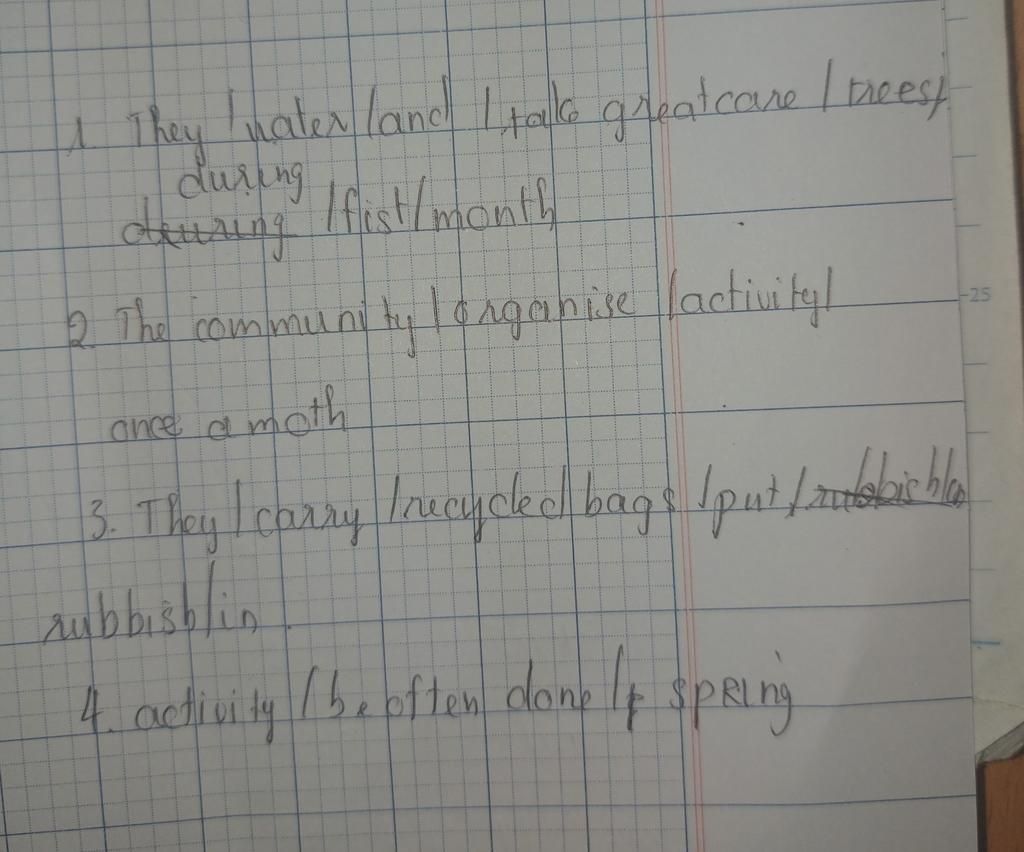 1 They / water / and / take great care / trees /
during
during / fist / month
2 The community / organise / activity /
once a moth
3. They / carry / recycled / bags / put / rubbish
rubbish / in
4. activity / be often done / spring
25